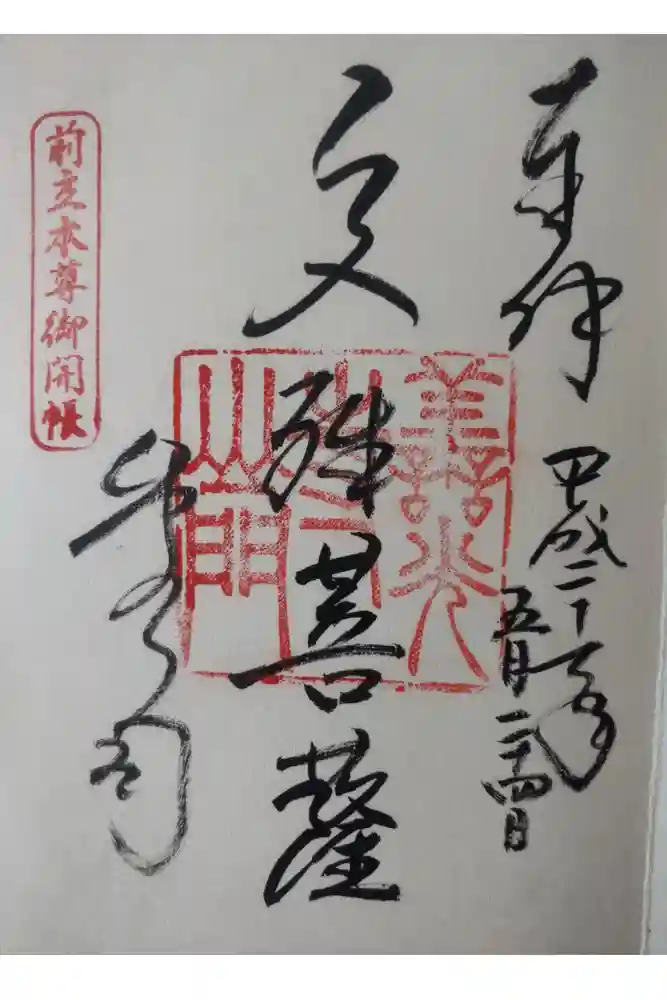 奉拝
平成二十一年
五月二十四日
文殊菩薩
善光
山門
前立本尊御開帳